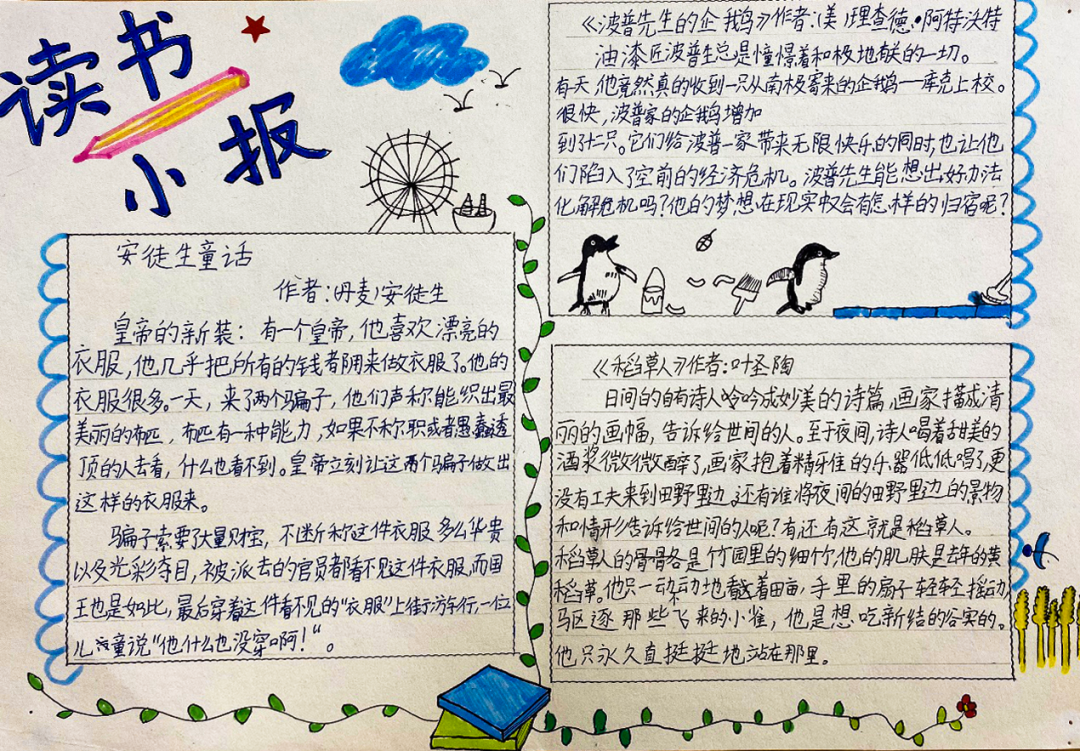 读书
小报
安徒生童话
作者:(丹麦)安徒生
皇帝的新装:有一个皇帝,他喜欢漂亮的
衣服,他几乎把所有的钱都用来做衣服了。他的
衣服很多。一天,来了两个骗子,他们声称能织出最
美丽的布匹,布匹有一种能力,如果不称职或者愚蠢透
顶的人去看,什么也看不到。皇帝立刻让这两个骗子做出
这样的衣服来。
骗子索要了大量财宝,不断称这件衣服多么华贵
以及光彩夺目,被派去的官员都看不见这件衣服,而国
王也是如此,最后穿着这件看不见的“衣服”上街游行,一位
儿童说“他什么也没穿啊!“。
《波普先生的企鹅》作者:(美)理查德·阿特沃特
油漆匠波普生总是憧憬着和极地有关的一切。
有天,他竟然真的收到一只从南极寄来的企鹅——库克上校。
很快,波普家的企鹅增加
到了十二只。它们给波普一家带来无限快乐的同时,也让他
们陷入了空前的经济危机。波普先生能想出好办法
化解危机吗?他的梦想在现实中又会有怎样的归宿呢?
《稻草人》作者:叶圣陶
日间的自有诗人吟成妙美的诗篇,画家描成清
丽的画幅,告诉给世间的人。至于夜间,诗人喝着甜美的
酒浆微微醉了,画家抱着精雅的乐器低低唱了,更
没有工夫来到田野里边。还有谁将夜间的田野里边的景物
和情形告诉给世间的人呢?有,还有,这就是稻草人。
稻草人的骨骼是竹园里的细竹,他的肌肤是去年的黄
稻草。他只一动动地看着田亩,手里的扇子轻轻摇动,
驱逐那些飞来的小雀,他是想吃新结的谷实的。
他只永久直挺挺地站在那里。